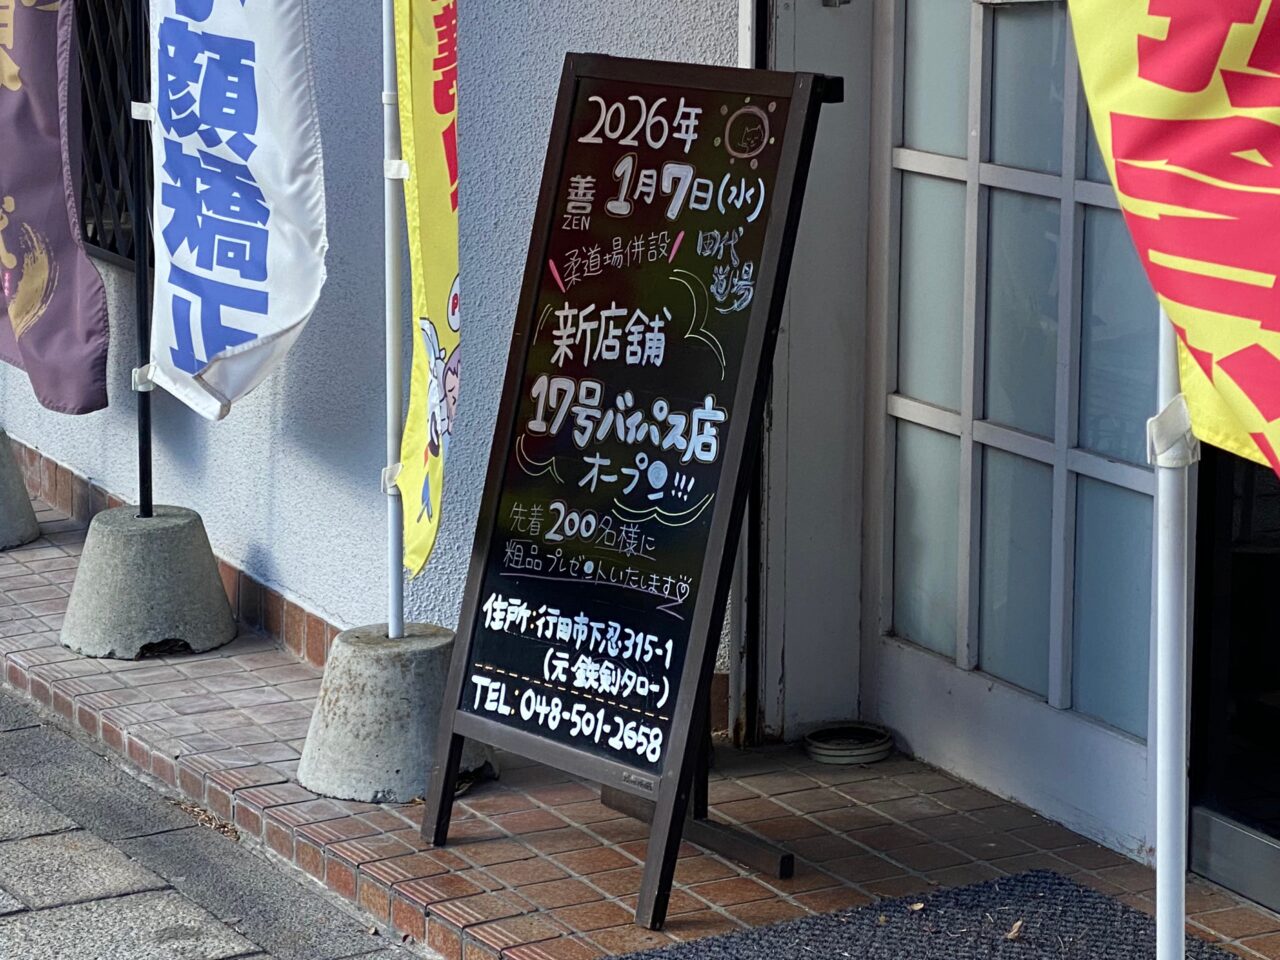 顔橋正
2026年
1月7日(水)
善
ZEN
柔道場併設
田代
道場
新店舗
17号バイパス店
オープン!!!
先着200名様に
粗品プレゼントいたします
住所:行田市下忍315-1
(元 鉄剣タロー)
TEL:048-501-2658